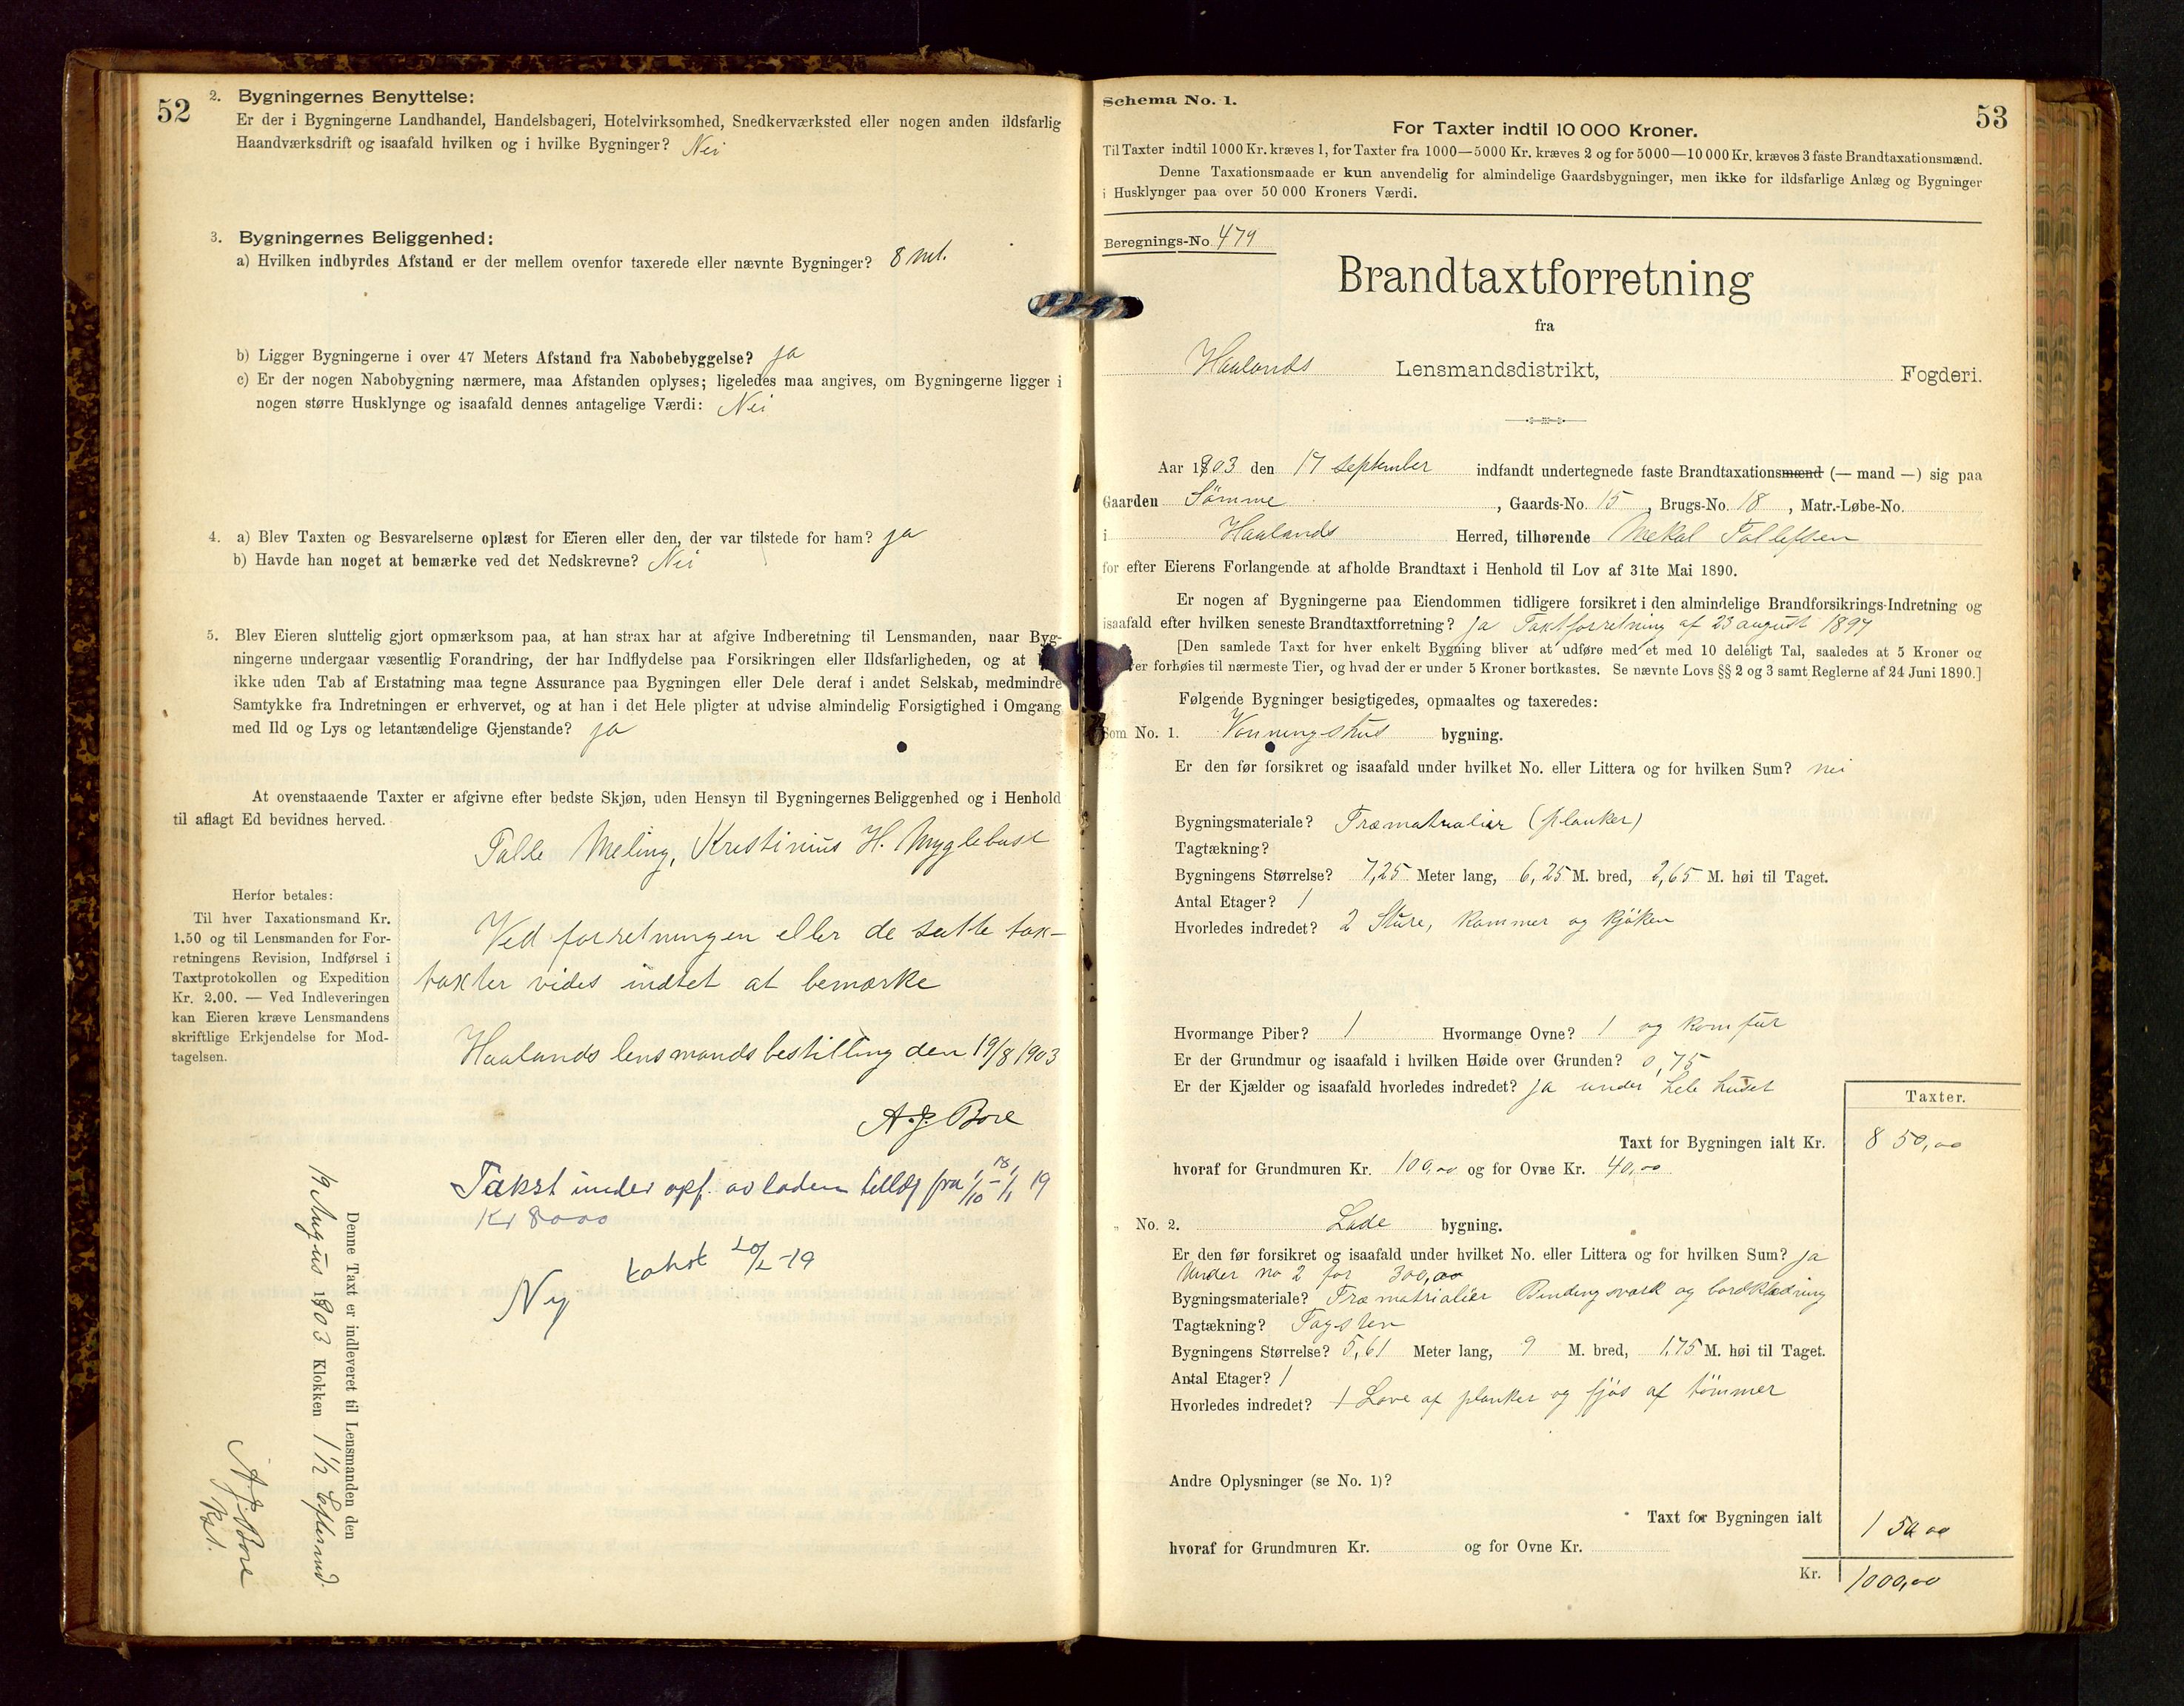 52
2. Bygningernes Benyttelse:
Er der i Bygningerne Landhandel, Handelsbageri, Hotelvirksomhed, Snedkerværksted eller nogen anden ildsfarlig
Haandværksdrift og isaafald hvilken og i hvilke Bygninger? Nei
3. Bygningernes Beliggenhed:
a) Hvilken indbyrdes Afstand er der mellem ovenfor taxerede eller nævnte Bygninger? 8 mt.
b) Ligger Bygningerne i over 47 Meters Afstand fra Nabobebyggelse? ja
c) Er der nogen Nabobygning nærmere, maa Afstanden oplyses; ligeledes maa angives, om Bygningerne ligger i
nogen større Husklynge og isaafald dennes antagelige Værdi: Nei
4. a) Blev Taxten og Besvarelserne oplæst for Eieren eller den, der var tilstede for ham? ja
b) Havde han noget at bemærke ved det Nedskrevne? Nei
5. Blev Eieren sluttelig gjort opmærksom paa, at han strax har at afgive Indberetning til Lensmanden, naar Byg-
ningerne undergaar væsentlig Forandring, der har Indflydelse paa Forsikringen eller Ildsfarligheden, og at
ikke uden Tab af Erstatning maa tegne Assurance paa Bygningen eller Dele deraf i andet Selskab, medmindre
Samtykke fra Indretningen er erhvervet, og at han i det Hele pligter at udvise almindelig Forsigtighed i Omgang
med Ild og Lys og letantændelige Gjenstande? ja
At ovenstaaende Taxter er afgivne efter bedste Skjøn, uden Hensyn til Bygningernes Beliggenhed og i Henhold
til aflagt Ed bevidnes herved.
Talle Meling, Kristinius H. Myglebust
Herfor betales:
Til hver Taxationsmand Kr.
1.50 og til Lensmanden for For-
retningens Revision, Indførsel i
Taxtprotokollen og Expedition
Kr. 2.00. — Ved Indleveringen
kan Eieren kræve Lensmandens
skriftlige Erkjendelse for Mod-
tagelsen.
Ved forretningen eller de satte tax-
taxter vides indtet at bemærke
Haalands lensmandsbestilling den 19/8 1903
A. J. Bore
Takst under opf. av laden tillæg fra 1/10 18 – 1/1 19
Kr 8000
Ny takst -19
Denne Taxt er indleveret til Lensmanden den
19 August 1903 Klokken 1 1/2 Eftermd.
A. J. Bore
Schema No. 1.
53
For Taxter indtil 10 000 Kroner.
Til Taxter indtil 1000 Kr. kræves 1, for Taxter fra 1000—5000 Kr. kræves 2 og for 5000—10 000 Kr. kræves 3 faste Brandtaxationsmænd.
Denne Taxationsmaade er kun anvendelig for almindelige Gaardsbygninger, men ikke for ildsfarlige Anlæg og Bygninger
i Husklynger paa over 50 000 Kroners Værdi.
Beregnings-No 479
Brandtaxtforretning
fra
Haalands Lensmandsdistrikt, Fogderi.
Aar 1903 den 17 september indfandt undertegnede faste Brandtaxationsmænd (— mand —) sig paa
Gaarden Sømme, Gaards-No. 15, Brugs-No. 18, Matr.-Løbe-No.
i Haalands Herred, tilhørende Mekal Tollefsen
for efter Eierens Forlangende at afholde Brandtaxt i Henhold til Lov af 31te Mai 1890.
Er nogen af Bygningerne paa Eiendommen tidligere forsikret i den almindelige Brandforsikrings-Indretning og
isaafald efter hvilken seneste Brandtaxtforretning? ja Taxtforretning af 23 august 1897
[Den samlede Taxt for hver enkelt Bygning bliver at udføre med et med 10 deleligt Tal, saaledes at 5 Kroner og
er forhøies til nærmeste Tier, og hvad der er under 5 Kroner bortkastes. Se nævnte Lovs §§ 2 og 3 samt Reglerne af 24 Juni 1890.]
Følgende Bygninger besigtigedes, opmaaltes og taxeredes:
Som No. 1. Vonningshus bygning.
Er den før forsikret og isaafald under hvilket No. eller Littera og for hvilken Sum? nei
Bygningsmateriale? Træmatrialier (planker)
Tagtækning?
Bygningens Størrelse? 7,25 Meter lang, 6,25 M. bred, 2,65 M. høi til Taget.
Antal Etager? 1
Hvorledes indredet? 2 Sture, kammer og kjøken
Hvormange Piber? 1 Hvormange Ovne? 1 og komfur
Er der Grundmur og isaafald i hvilken Høide over Grunden? 0,75
Er der Kjælder og isaafald hvorledes indredet? ja under hele huset
Taxter.
Taxt for Bygningen ialt Kr. 850,00
hvoraf for Grundmuren Kr. 100,00 og for Ovne Kr. 40,00
„ No. 2. Lade bygning.
Er den før forsikret og isaafald under hvilket No. eller Littera og for hvilken Sum? ja
Under no 2 for 300,00
Bygningsmateriale? Træmatrialier Bindingsværk og bordklædning
Tagtækning? Tagsten
Bygningens Størrelse? 5,61 Meter lang, 9 M. bred, 1,75 M. høi til Taget.
Antal Etager? 1
Hvorledes indredet? 1 Løve af planker og fjøs af tømmer
Andre Oplysninger (se No. 1)?
Taxt for Bygningen ialt 150 00
hvoraf for Grundmuren Kr. og for Ovne Kr.
Kr. 1000,00